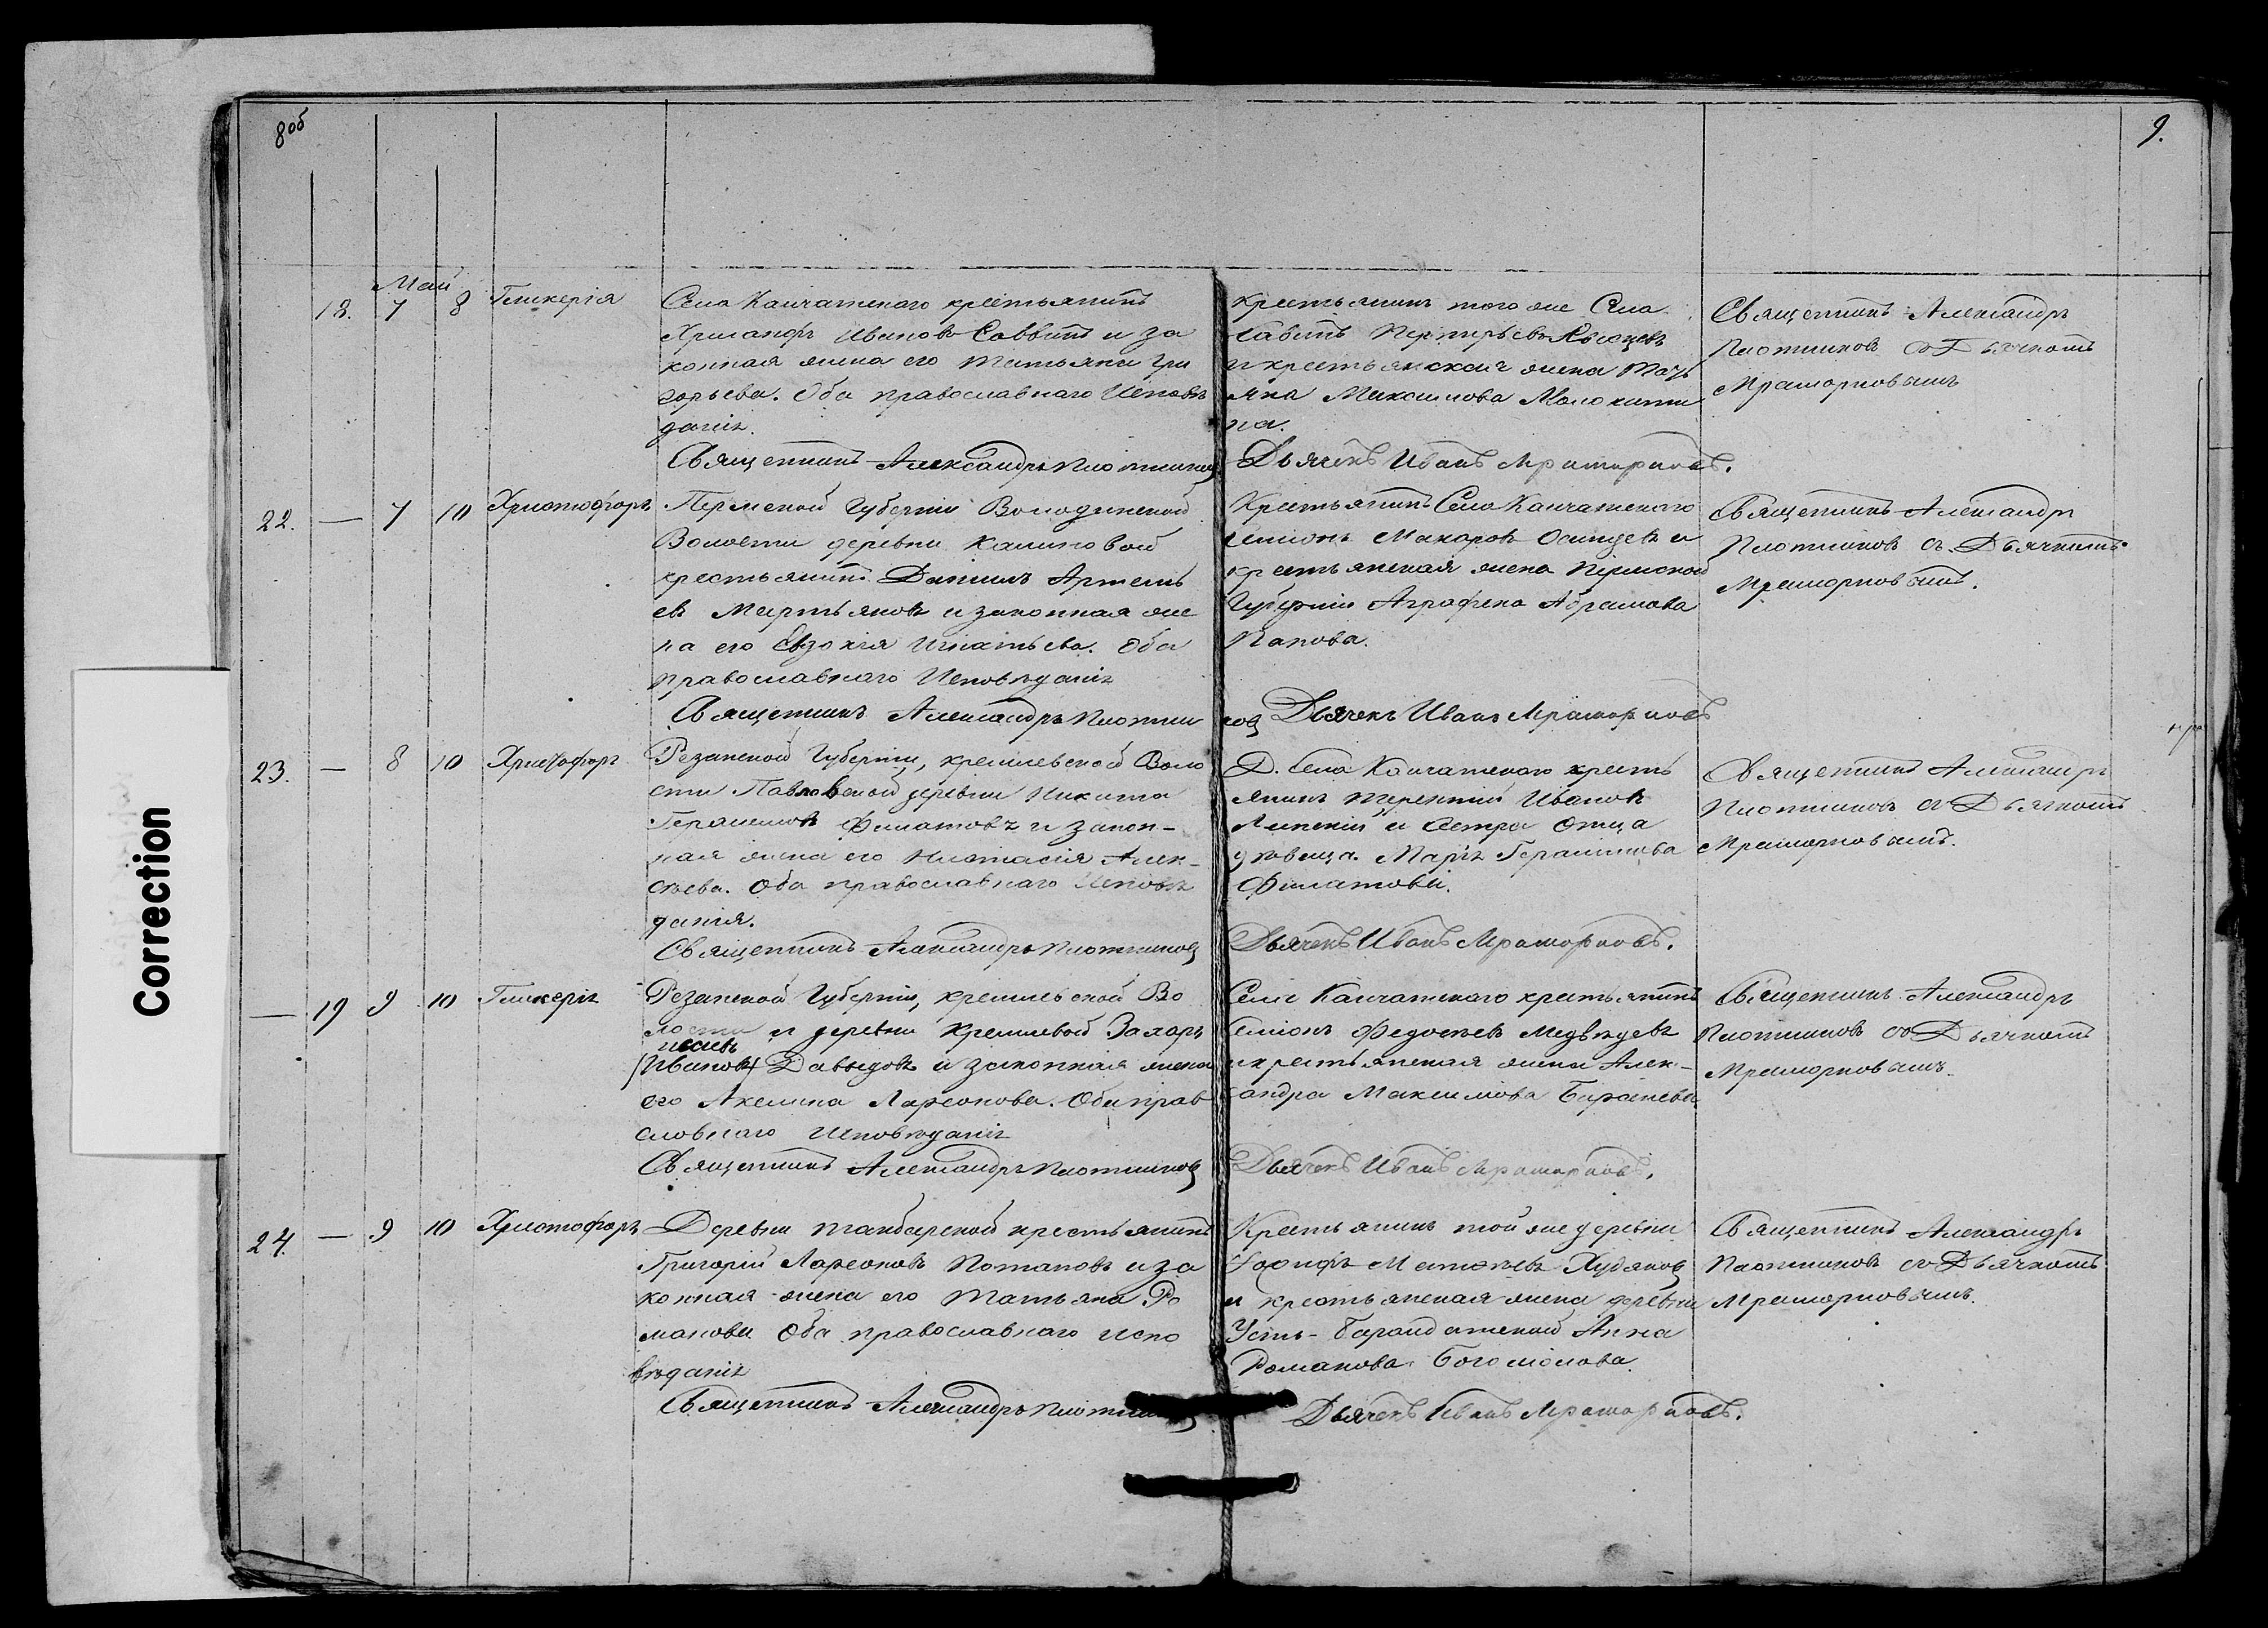 8об
9.
Май
18. 7 8 Гликерія
Села Камчатскаго крестьянинъ
Хрисанфъ Ивановъ Саввинъ и за
конная жена его Татьяна Гри
горьева. Оба православнаго Исповѣ
данія.
Священникъ Александръ Плотниковъ
крестьянинъ того же Села
и крестьянская жена Тать
яна
на.
Дьячекъ Иванъ Мраморновъ.
Священникъ Александръ
Плотниковъ съ Дьячкомъ
Мраморновымъ
22. — 7 10 Христофоръ
Пермской Губерніи Володинской
Волости деревни Калиновой
крестьянинъ Даніилъ Артемь
евъ Мартьяновъ и законная же
на его Евдокія Игнатьева. Оба
православнаго Исповѣданія
Священникъ Александръ Плотни
Крестьянинъ Села Камчатскаго
Семіонъ Макаровъ Осинцевъ и
крестьянская жена Пермской
Губерніи Аграфена Абрамова
Папова.
ковъ Дьячекъ Иванъ Мраморновъ
Священникъ Александръ
Плотниковъ съ Дьячкомъ
Мраморновымъ.
23. — 8 10 Христофоръ
Резанской Губерніи, кремлевской Воло
сти Павловской деревни Никита
Герасимовъ Филатовъ и закон-
ная жена его Настасія Алек-
сѣева. Оба православнаго Исповѣ
данія.
Священникъ Александръ Плотниковъ
Д. Села Камчатскаго кресть
янинъ Терентій Ивановъ
Липскій и Сестра Отца
дѣвица Марія Герасимова
Филатова.
Дьячекъ Иванъ Мраморновъ.
Священникъ Александръ
Плотниковъ съ Дьячкомъ
Мраморновымъ.
— 19 9 10 Гликерія
Резанской Губерніи, кремлевской Во
лости и деревни Кремлевой Захаръ
Исаевъ
(Ивановъ) Давыдовъ и законная жена
его Акелина Ларионова. Оба прав
славнаго Исповѣданія
Священникъ Александръ Плотниковъ
Села Камчатскаго крестьянинъ
Семіонъ Федотьевъ Медвѣдевъ
и крестьянская жена Алек-
сандра Максимова
Дьячекъ Иванъ Мраморновъ.
Священникъ Александръ
Плотниковъ съ Дьячкомъ
Мраморновымъ.
24. — 9 10 Христофоръ
Деревни Тамбарской крестьянинъ
Григорій Ларионовъ Потаповъ и за
конная жена его Татьяна Ро
манова Оба православнаго Испо
вѣданія
Священникъ Александръ Плотниковъ
Крестьянинъ той же деревни
Іосифъ Матвѣевъ Худяковъ
и крестьянская жена деревни
Усть-Барандатской Анна
Романова Богомолова.
Дьячекъ Иванъ Мраморновъ.
Священникъ Александръ
Плотниковъ съ Дьячкомъ
Мраморновымъ.
Correction